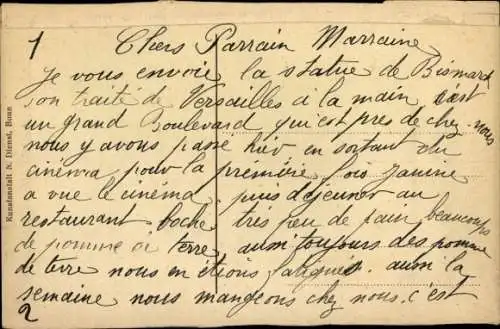 1
Chers Parrain Marraine
Je vous envoie la statue de Bismark
son traité de Versailles a la main c'est
un grand Boulevard qui est pres de chez-nous
nous y avons passé hier en sortant du
cinéma pour la première fois Janine
a vue le cinéma puis déjeuner au
restaurant boche très peu de pain beaucoup
de pomme de terre aussi toujours des pomme
de terre nous en étions fatigués. aussi la
semaine nous mangeons chez nous. c'est
2
Kunstanstalt N. Dienst, Bonn